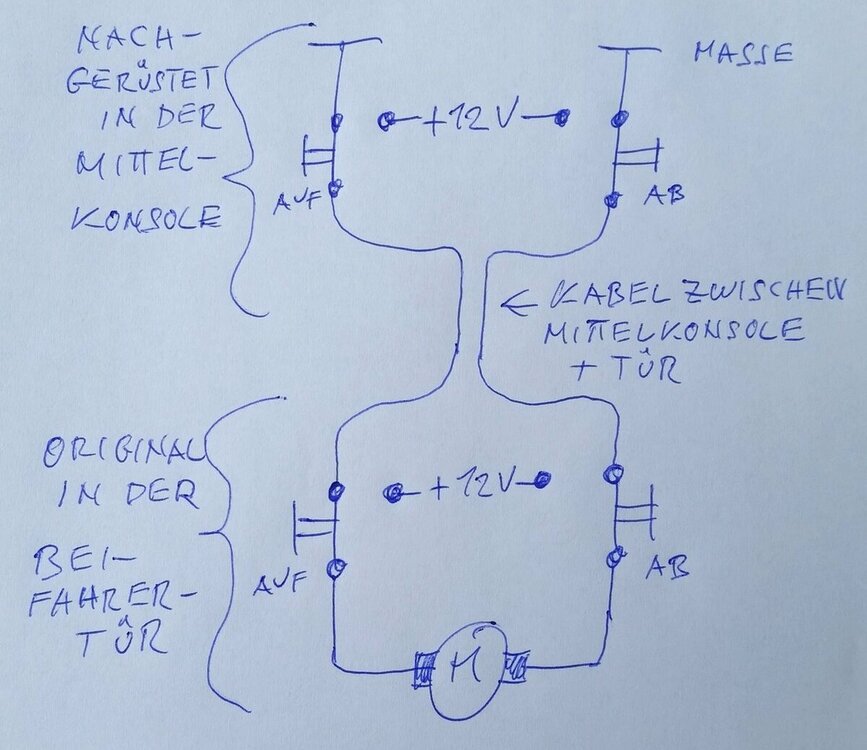 NACH-
GERÜSTET
IN DER
MITTEL-
KONSOLE
MASSE
+12V
AUF
AB
← KABEL ZWISCHEN
MITTELKONSOLE
+ TÜR
ORIGINAL
IN DER
BEI-
FAHRER-
TÜR
+12V
AUF
AB
M